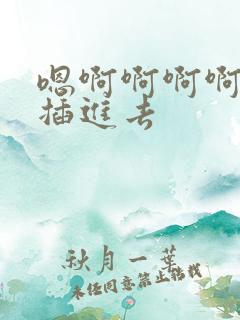 嗯啊啊啊啊
插进去
秋月一叶
未经同意禁止转载